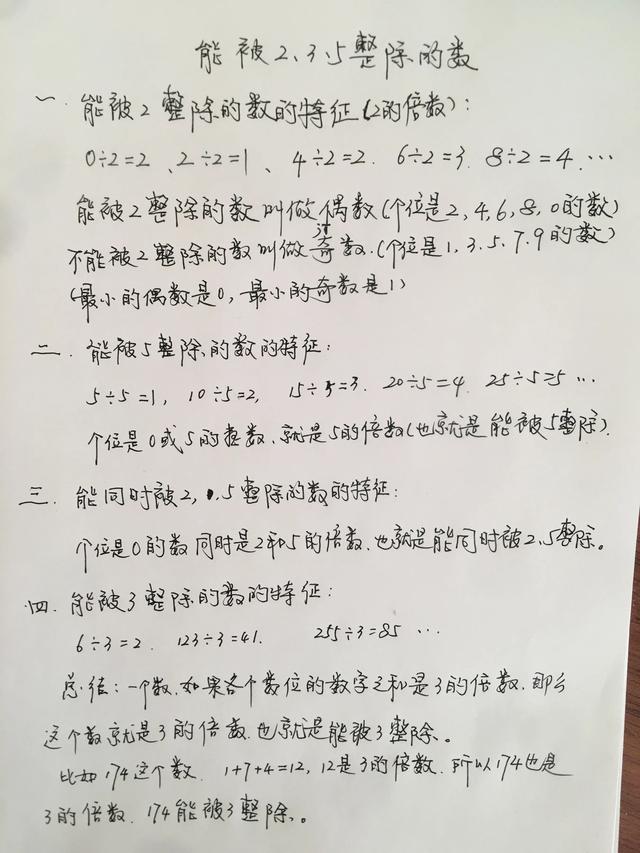 能被2、3、5整除的数
一. 能被2整除的数的特征(2的倍数):
0÷2=2、2÷2=1、4÷2=2. 6÷2=3. 8÷2=4. …
能被2整除的数叫做偶数(个位是2,4,6,8,0的数)
不能被2整除的数叫做奇数.(个位是1,3.5.7.9的数)
(最小的偶数是0,最小的奇数是1)
二. 能被5整除的数的特征:
5÷5=1, 10÷5=2, 15÷5=3. 20÷5=4. 25÷5=5 …
个位是0或5的整数、就是5的倍数(也就是能被5整除).
三. 能同时被2,.5整除的数的特征:
个位是0的数同时是2和5的倍数.也就是能同时被2、5整除。
四. 能被3整除的数的特征:
6÷3=2. 123÷3=41. 255÷3=85 …
总结:一个数.如果各个数位的数字之和是3的倍数.那么
这个数就是3的倍数.也就是能被3整除。
比如174这个数. 1+7+4=12, 12是3的倍数.所以174也是
3的倍数. 174能被3整除。